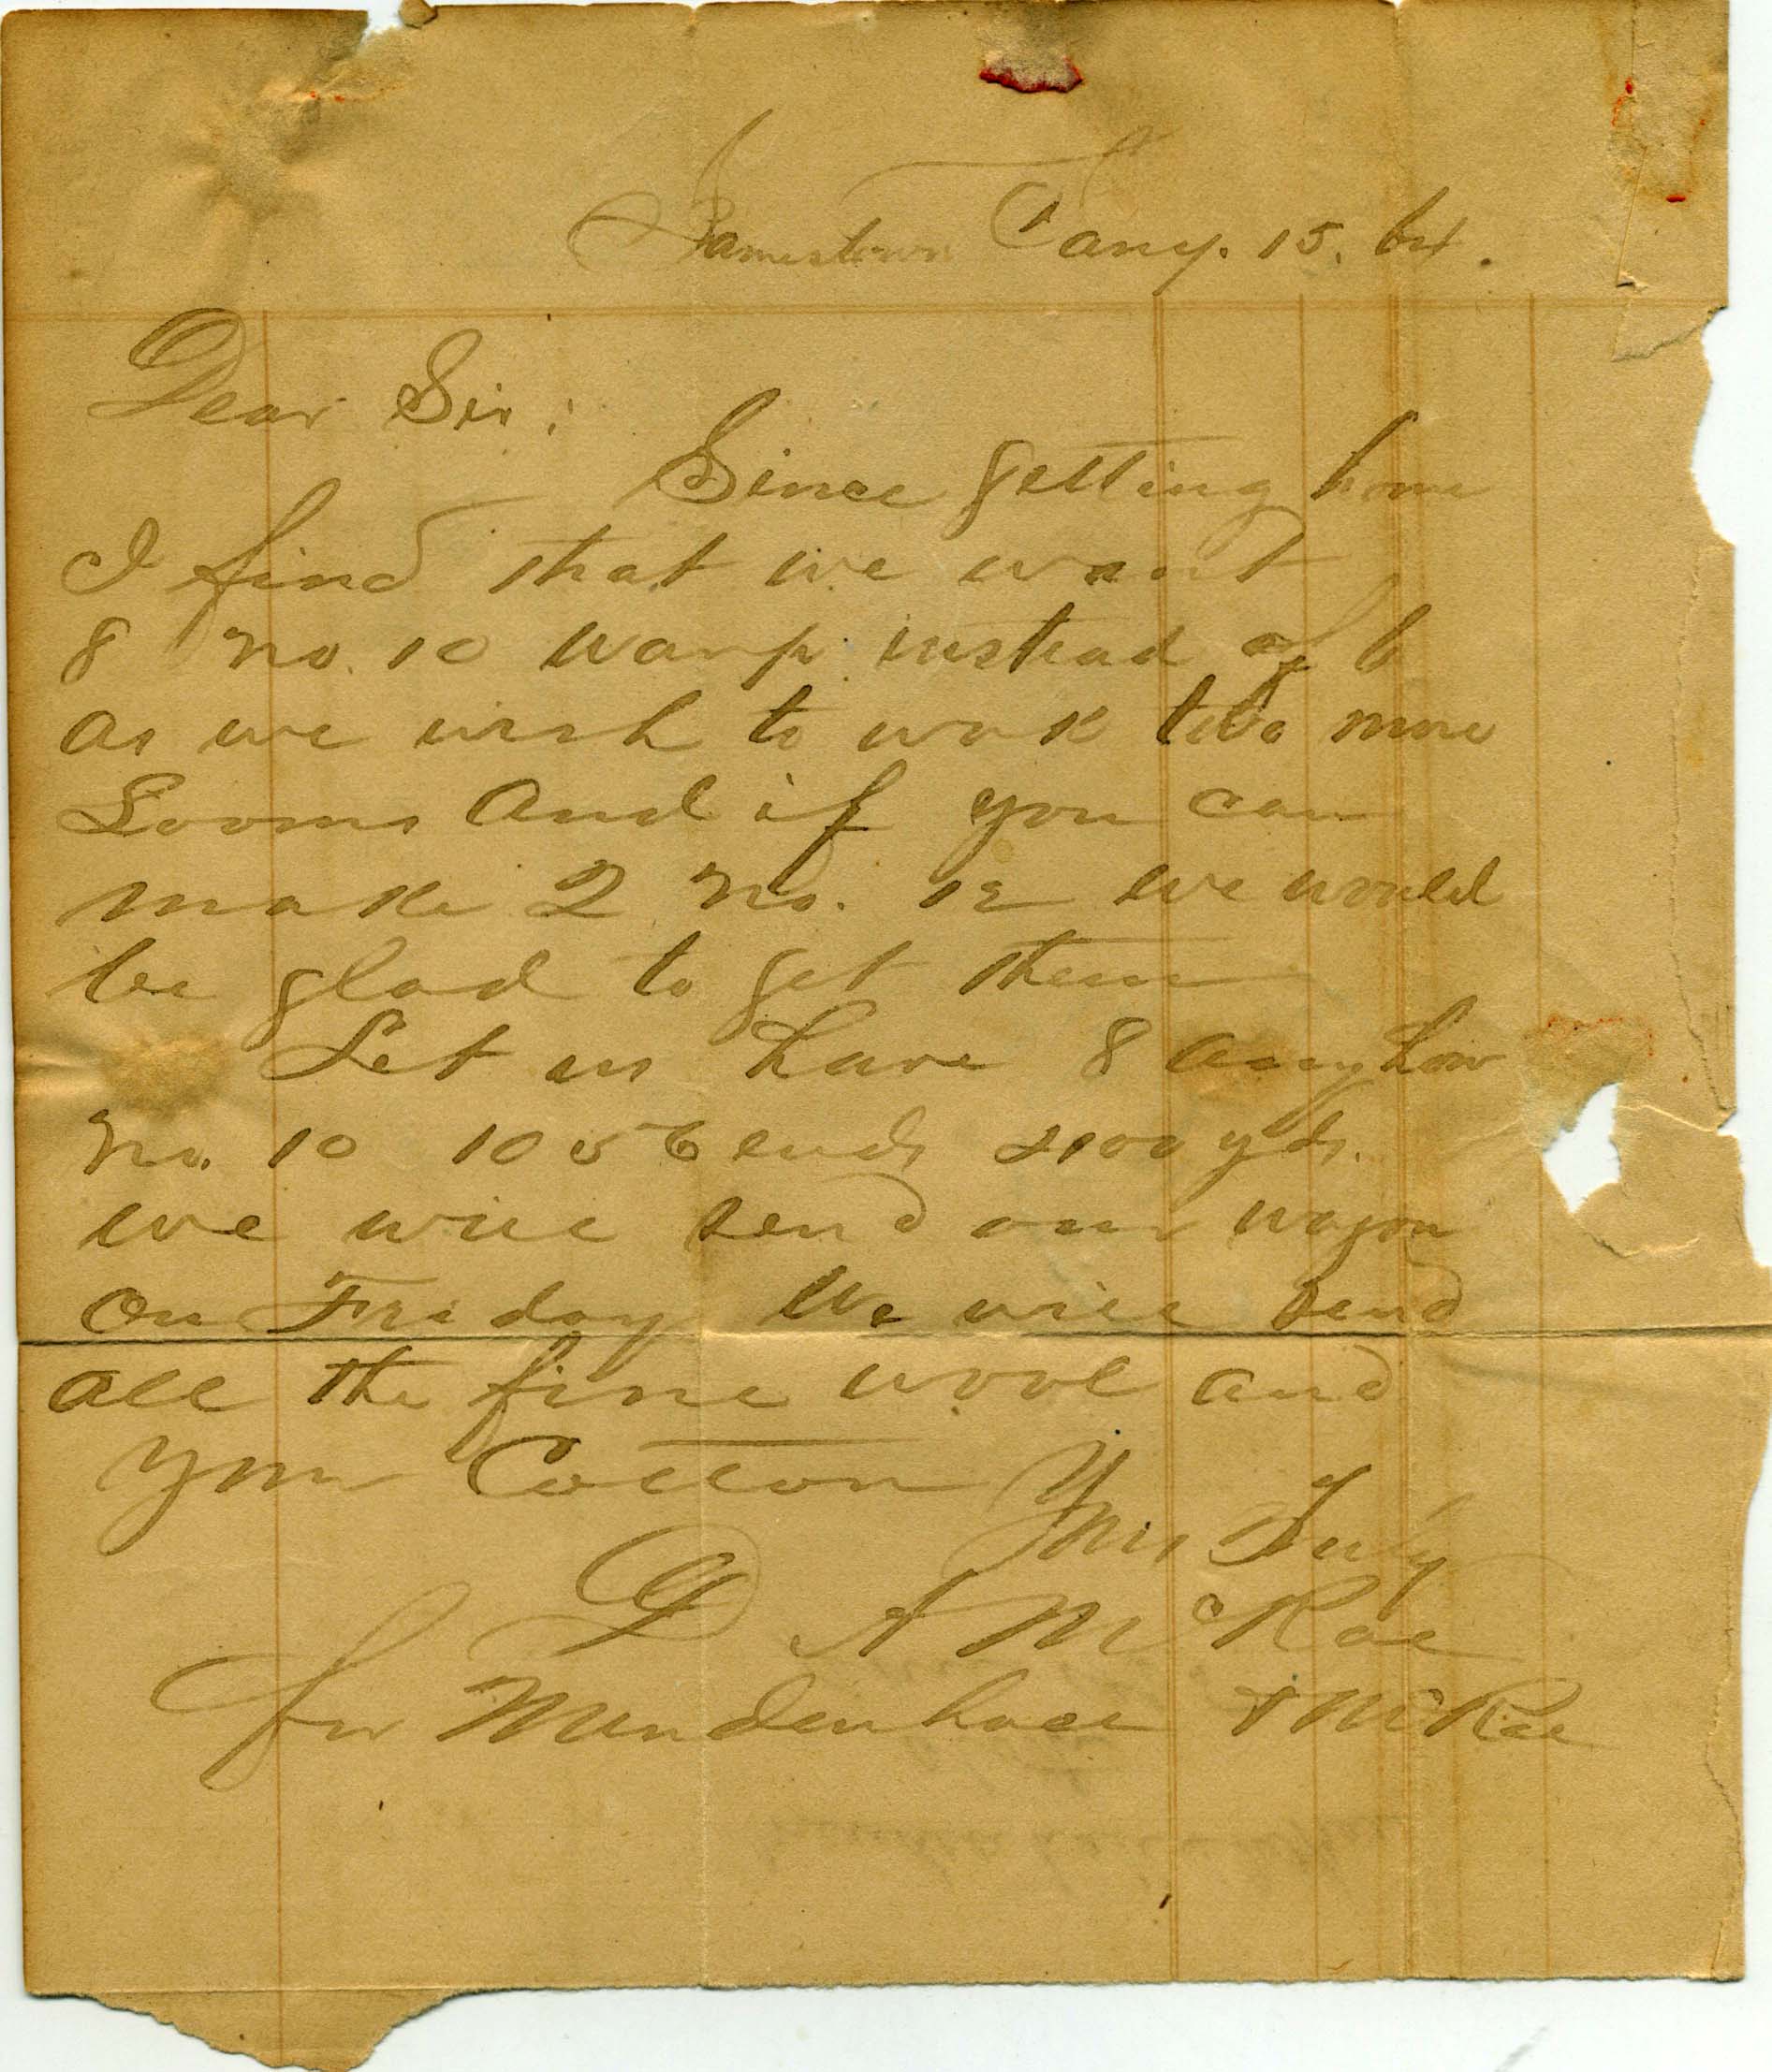 Jamestown Jany. 15. 64.
Dear Sir:
Since getting home
I find that we want
8 No. 10 warp instead of 6
as we wish to work two more
Looms and if you can
make 2 No. 12 we would
be glad to get them
Let us have 8 anyhow
No. 10 1056 ends 2100 yds.
we will send our wagon
on Friday We will send
all the fine wool and
your Cotton
Yours Truly
D A McRae
for Mendenhall & McRae